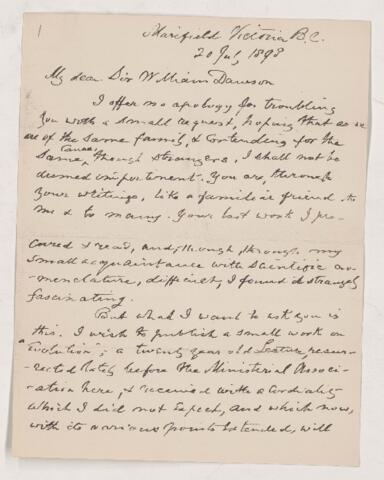 1
Marifield Victoria B.C.
20 July 1893
My dear Sir William Dawson
I offer no apology for troubling
you with a small request, hoping that as we
are of the same family, & contending for the
same Cause, though strangers, I shall not be
deemed impertinent. You are, through
your writings, like a familiar friend to
me & to many. Your last work I pro-
cured & read, and, though, through my
small acquaintance with scientific no-
menclature, difficult, I found it strangely
fascinating.
But what I want to ask you is
this. I wish to publish a small work on
"Evolution"; a twenty year old Lecture, resur-
rected lately before the Ministerial Associ-
ation here, & received with a cordiality
which I did not expect, and which now,
with its various points extended, will